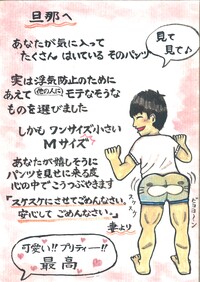 旦那へ
見て見て♪
あなたが気に入って
たくさん はいている そのパンツ
実は浮気防止のために
あえて 他の人に モテなそうな
ものを選びました
しかも ワンサイズ小さい
Mサイズ
あなたが嬉しそうに
パンツを見せに来る度
心の中でこうつぶやきます
"スケスケにさせてごめんなさい。
安心してごめんなさい。"
妻より
スケスケ
ピョコーン
可愛い!! プリティー!!
最高